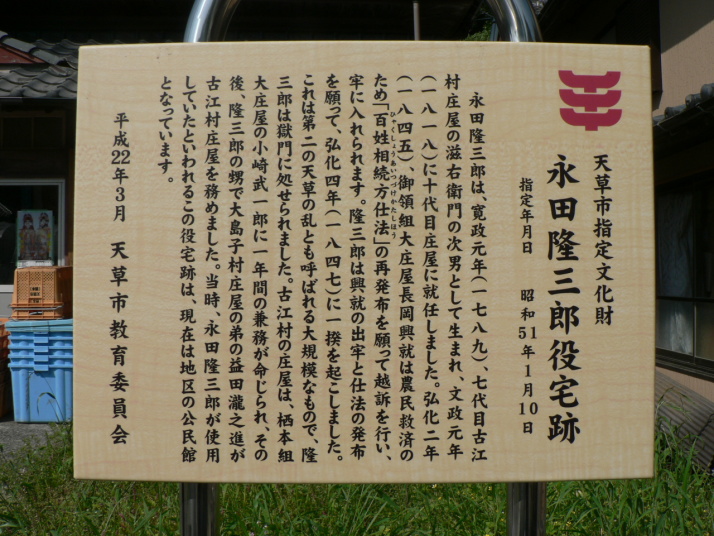 天草市指定文化財
永田隆三郎役宅跡
指定年月日 昭和51年1月10日
永田隆三郎は、寛政元年(一七八九)、七代目古江
村庄屋の滋右衛門の次男として生まれ、文政元年
(一八一八)に十代目庄屋に就任しました。弘化二年
(一八四五)、御領組大庄屋長岡興就は農民救済の
ため「百姓相続方仕法」の再発布を願って越訴を行い、
ひゃくしょうあいつづけかたしほう
牢に入れられます。隆三郎は興就の出牢と仕法の発布
を願って、弘化四年(一八四七)に一揆を起こしました。
これは第二の天草の乱とも呼ばれる大規模なもので、隆
三郎は獄門に処せられました。古江村の庄屋は、栖本組
大庄屋の小崎武一郎に一年間の兼務が命じられ、その
後、隆三郎の甥で大島子村庄屋の弟の益田瀧之進が
古江村庄屋を務めました。当時、永田隆三郎が使用
していたといわれるこの役宅跡は、現在は地区の公民館
となっています。
平成22年3月 天草市教育委員会